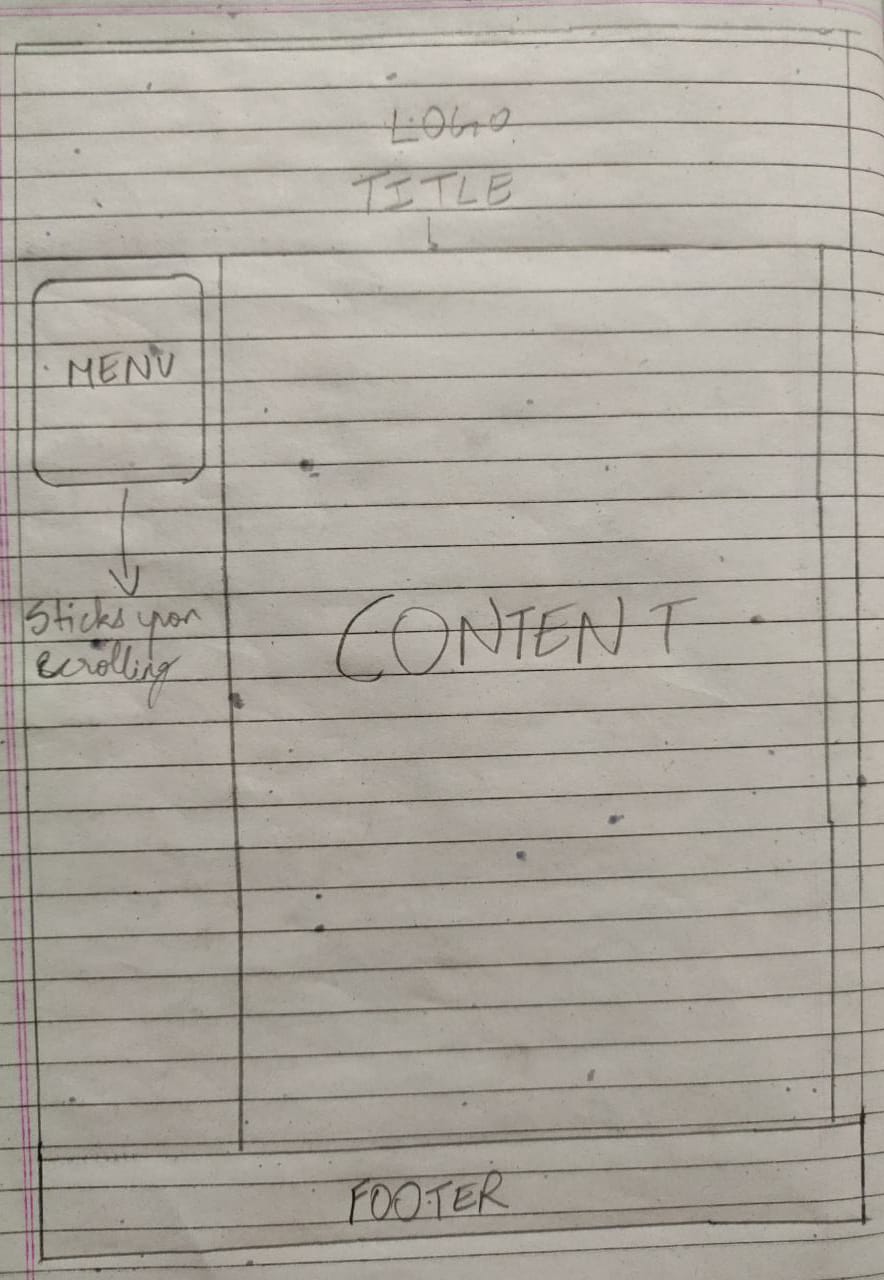 LOGO
TITLE
MENU
Sticks upon
scrolling
CONTENT
FOOTER